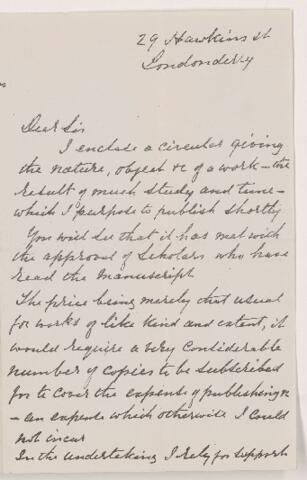 29 Hawkins St
Londonderry
Dear Sir
I enclose a circular giving
the nature, object &c of a work – the
result of much study and time –
which I purpose to publish shortly
You will see that it has met with
the approval of Scholars who have
read the Manuscript
The price being merely that usual
for works of like kind and extent, it
would require a very considerable
number of copies to be subscribed
for to cover the expense of publishing &c
– an expense which otherwise I could
not incur
In the undertaking I rely for support